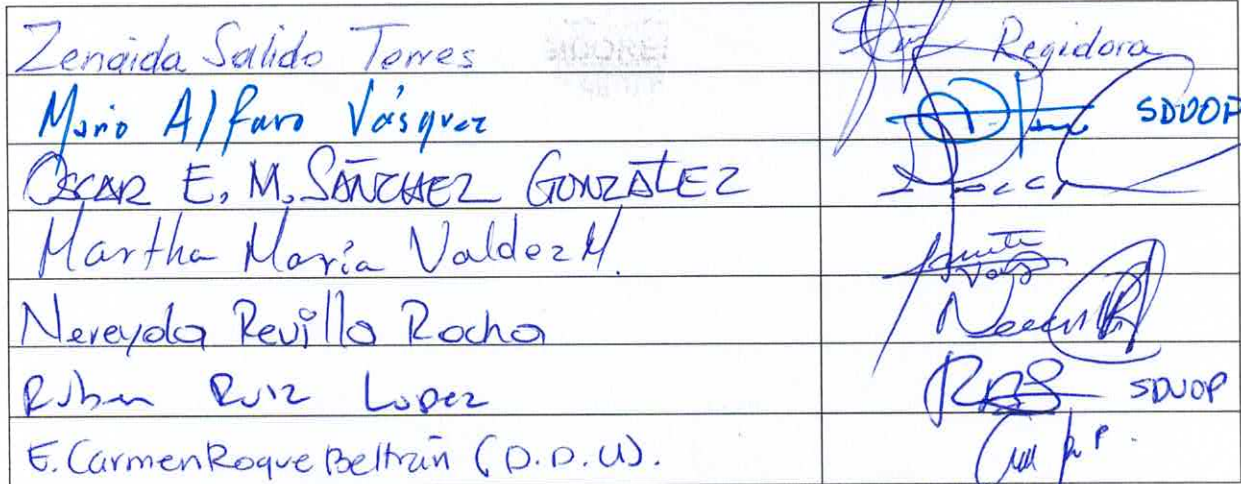 Zenaida Salido Torres Regidora
Mario Alfaro Vásquez SDUOP
OSCAR E. M. SÁNCHEZ GONZÁLEZ
Martha María Valdez M.
Nereyda Revilla Rocha
Ruben Ruiz Lopez SDUOP
E. Carmen Roque Beltrán (D.D.U).